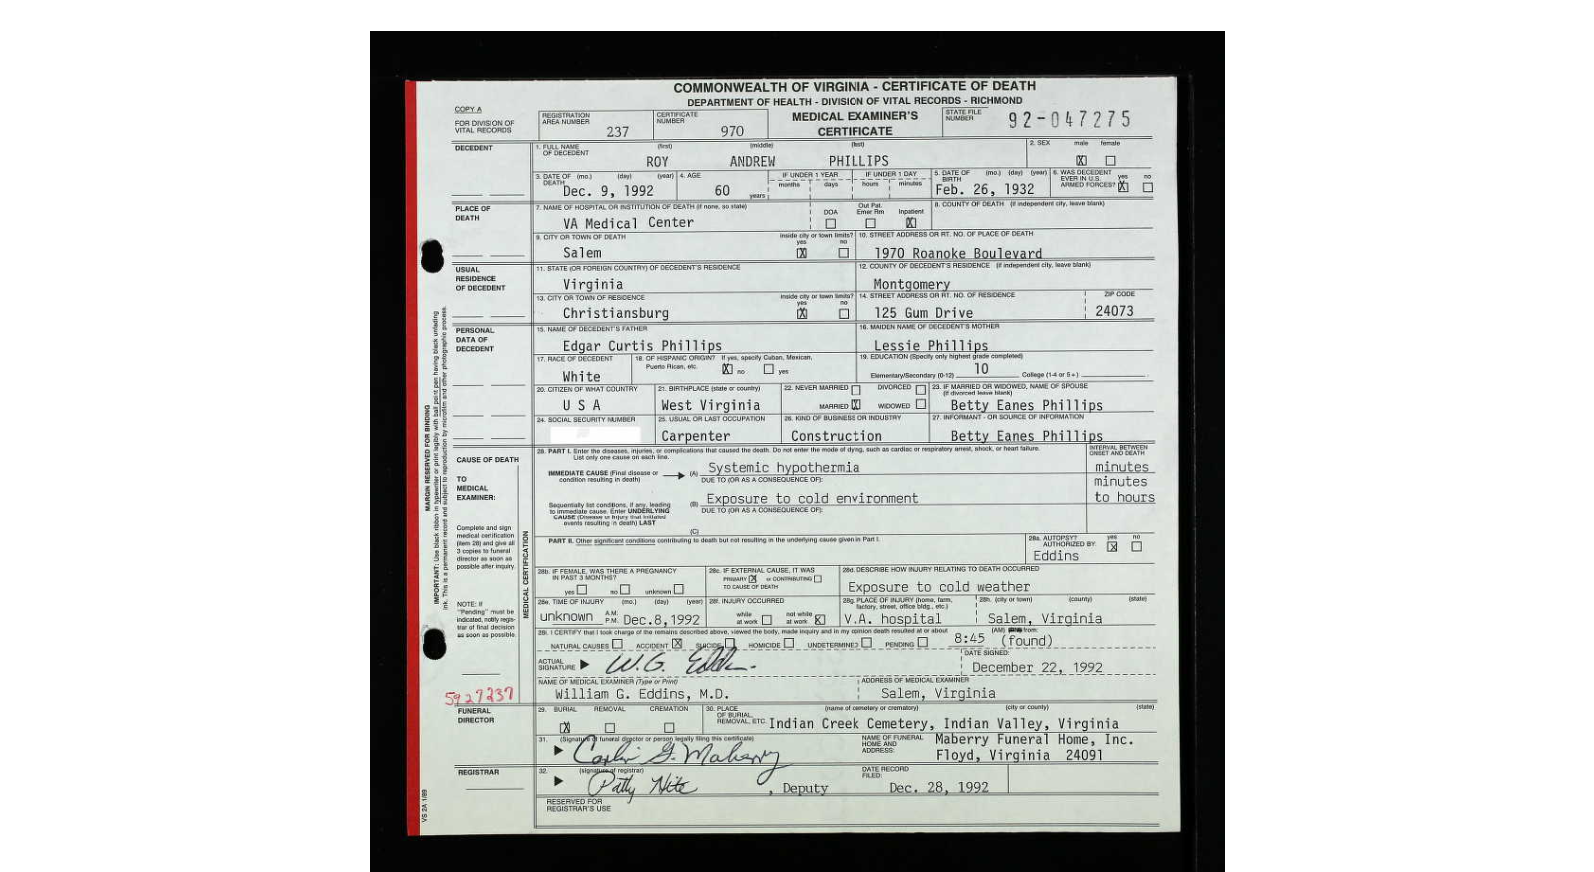 COMMONWEALTH OF VIRGINIA - CERTIFICATE OF DEATH
DEPARTMENT OF HEALTH - DIVISION OF VITAL RECORDS - RICHMOND
COPY A
FOR DIVISION OF VITAL RECORDS
REGISTRATION AREA NUMBER 237
CERTIFICATE NUMBER 970
MEDICAL EXAMINER'S CERTIFICATE
STATE FILE NUMBER 92-047275
DECEDENT
1. FULL NAME OF DECEDENT (first) (middle) (last)
ROY ANDREW PHILLIPS
2. SEX male female
X
3. DATE OF DEATH (mo.) (day) (year)
Dec. 9, 1992
4. AGE 60 years
IF UNDER 1 YEAR months days
IF UNDER 1 DAY hours minutes
5. DATE OF BIRTH (mo.) (day) (year)
Feb. 26, 1932
6. WAS DECEDENT EVER IN U.S. ARMED FORCES? yes no
X
PLACE OF DEATH
7. NAME OF HOSPITAL OR INSTITUTION OF DEATH (if none, so state)
VA Medical Center
DOA Out Pat. Emer Rm Inpatient
X
8. COUNTY OF DEATH (if independent city, leave blank)
9. CITY OR TOWN OF DEATH
Salem
inside city or town limits? yes no
X
10. STREET ADDRESS OR RT. NO. OF PLACE OF DEATH
1970 Roanoke Boulevard
USUAL RESIDENCE OF DECEDENT
11. STATE (OR FOREIGN COUNTRY) OF DECEDENT'S RESIDENCE
Virginia
12. COUNTY OF DECEDENT'S RESIDENCE (if independent city, leave blank)
Montgomery
13. CITY OR TOWN OF RESIDENCE
Christiansburg
inside city or town limits? yes no
X
14. STREET ADDRESS OR RT. NO. OF RESIDENCE
125 Gum Drive
ZIP CODE
24073
PERSONAL DATA OF DECEDENT
15. NAME OF DECEDENT'S FATHER
Edgar Curtis Phillips
16. MAIDEN NAME OF DECEDENT'S MOTHER
Lessie Phillips
17. RACE OF DECEDENT
White
18. OF HISPANIC ORIGIN? If yes, specify Cuban, Mexican, Puerto Rican, etc.
X no yes
19. EDUCATION (Specify only highest grade completed)
Elementary/Secondary (0-12) 10 College (1-4 or 5+)
20. CITIZEN OF WHAT COUNTRY
U S A
21. BIRTHPLACE (state or country)
West Virginia
22. NEVER MARRIED DIVORCED
MARRIED X WIDOWED
23. IF MARRIED OR WIDOWED, NAME OF SPOUSE (If divorced leave blank)
Betty Eanes Phillips
24. SOCIAL SECURITY NUMBER
25. USUAL OR LAST OCCUPATION
Carpenter
26. KIND OF BUSINESS OR INDUSTRY
Construction
27. INFORMANT - OR SOURCE OF INFORMATION
Betty Eanes Phillips
CAUSE OF DEATH
TO MEDICAL EXAMINER:
Complete and sign medical certification (item 28) and give all 3 copies to funeral director as soon as possible after inquiry.
NOTE: If "Pending" must be indicated, notify registrar of final decision as soon as possible.
MEDICAL CERTIFICATION
28. PART I. Enter the diseases, injuries, or complications that caused the death. Do not enter the mode of dying, such as cardiac or respiratory arrest, shock, or heart failure.
List only one cause on each line.
INTERVAL BETWEEN ONSET AND DEATH
IMMEDIATE CAUSE (Final disease or condition resulting in death)
(A) Systemic hypothermia
minutes
DUE TO (OR AS A CONSEQUENCE OF):
Sequentially list conditions, if any, leading to immediate cause. Enter UNDERLYING CAUSE (Disease or injury that initiated events resulting in death) LAST
(B) Exposure to cold environment
minutes to hours
DUE TO (OR AS A CONSEQUENCE OF):
(C)
PART II. Other significant conditions contributing to death but not resulting in the underlying cause given in Part I.
28a. AUTOPSY? AUTHORIZED BY: yes no
Eddins X
28b. IF FEMALE, WAS THERE A PREGNANCY IN PAST 3 MONTHS?
yes no unknown
28c. IF EXTERNAL CAUSE, IT WAS
PRIMARY X or CONTRIBUTING
TO CAUSE OF DEATH
28d. DESCRIBE HOW INJURY RELATING TO DEATH OCCURRED
Exposure to cold weather
28e. TIME OF INJURY (mo.) (day) (year)
unknown A.M. P.M. Dec.8,1992
28f. INJURY OCCURRED
while at work not while at work X
28g. PLACE OF INJURY (home, farm, factory, street, office bldg., etc.)
V.A. hospital
28h. (city or town) (county) (state)
Salem, Virginia
28i. I CERTIFY that I took charge of the remains described above, viewed the body, made inquiry and in my opinion death resulted at or about
8:45 (AM) from:
(found)
NATURAL CAUSES ACCIDENT X SUICIDE HOMICIDE UNDETERMINED PENDING
ACTUAL SIGNATURE W.G. Eddins
DATE SIGNED:
December 22, 1992
NAME OF MEDICAL EXAMINER (Type or Print)
William G. Eddins, M.D.
ADDRESS OF MEDICAL EXAMINER
Salem, Virginia
5927237
FUNERAL DIRECTOR
29. BURIAL REMOVAL CREMATION
X
30. PLACE OF BURIAL, REMOVAL, ETC. (name of cemetery or crematory) (city or county) (state)
Indian Creek Cemetery, Indian Valley, Virginia
31. (Signature of funeral director or person legally filing this certificate)
NAME OF FUNERAL HOME AND ADDRESS:
Maberry Funeral Home, Inc.
Floyd, Virginia 24091
REGISTRAR
32. (signature of registrar)
Patty Nite, Deputy
DATE RECORD FILED:
Dec. 28, 1992
RESERVED FOR REGISTRAR'S USE
VS 2A 1/89
MARGIN RESERVED FOR BINDING
IMPORTANT: Use black ribbon in typewriter or print legibly with ball point pen having black unfading ink. This is a permanent record and subject to reproduction by microfilm and other photographic process.